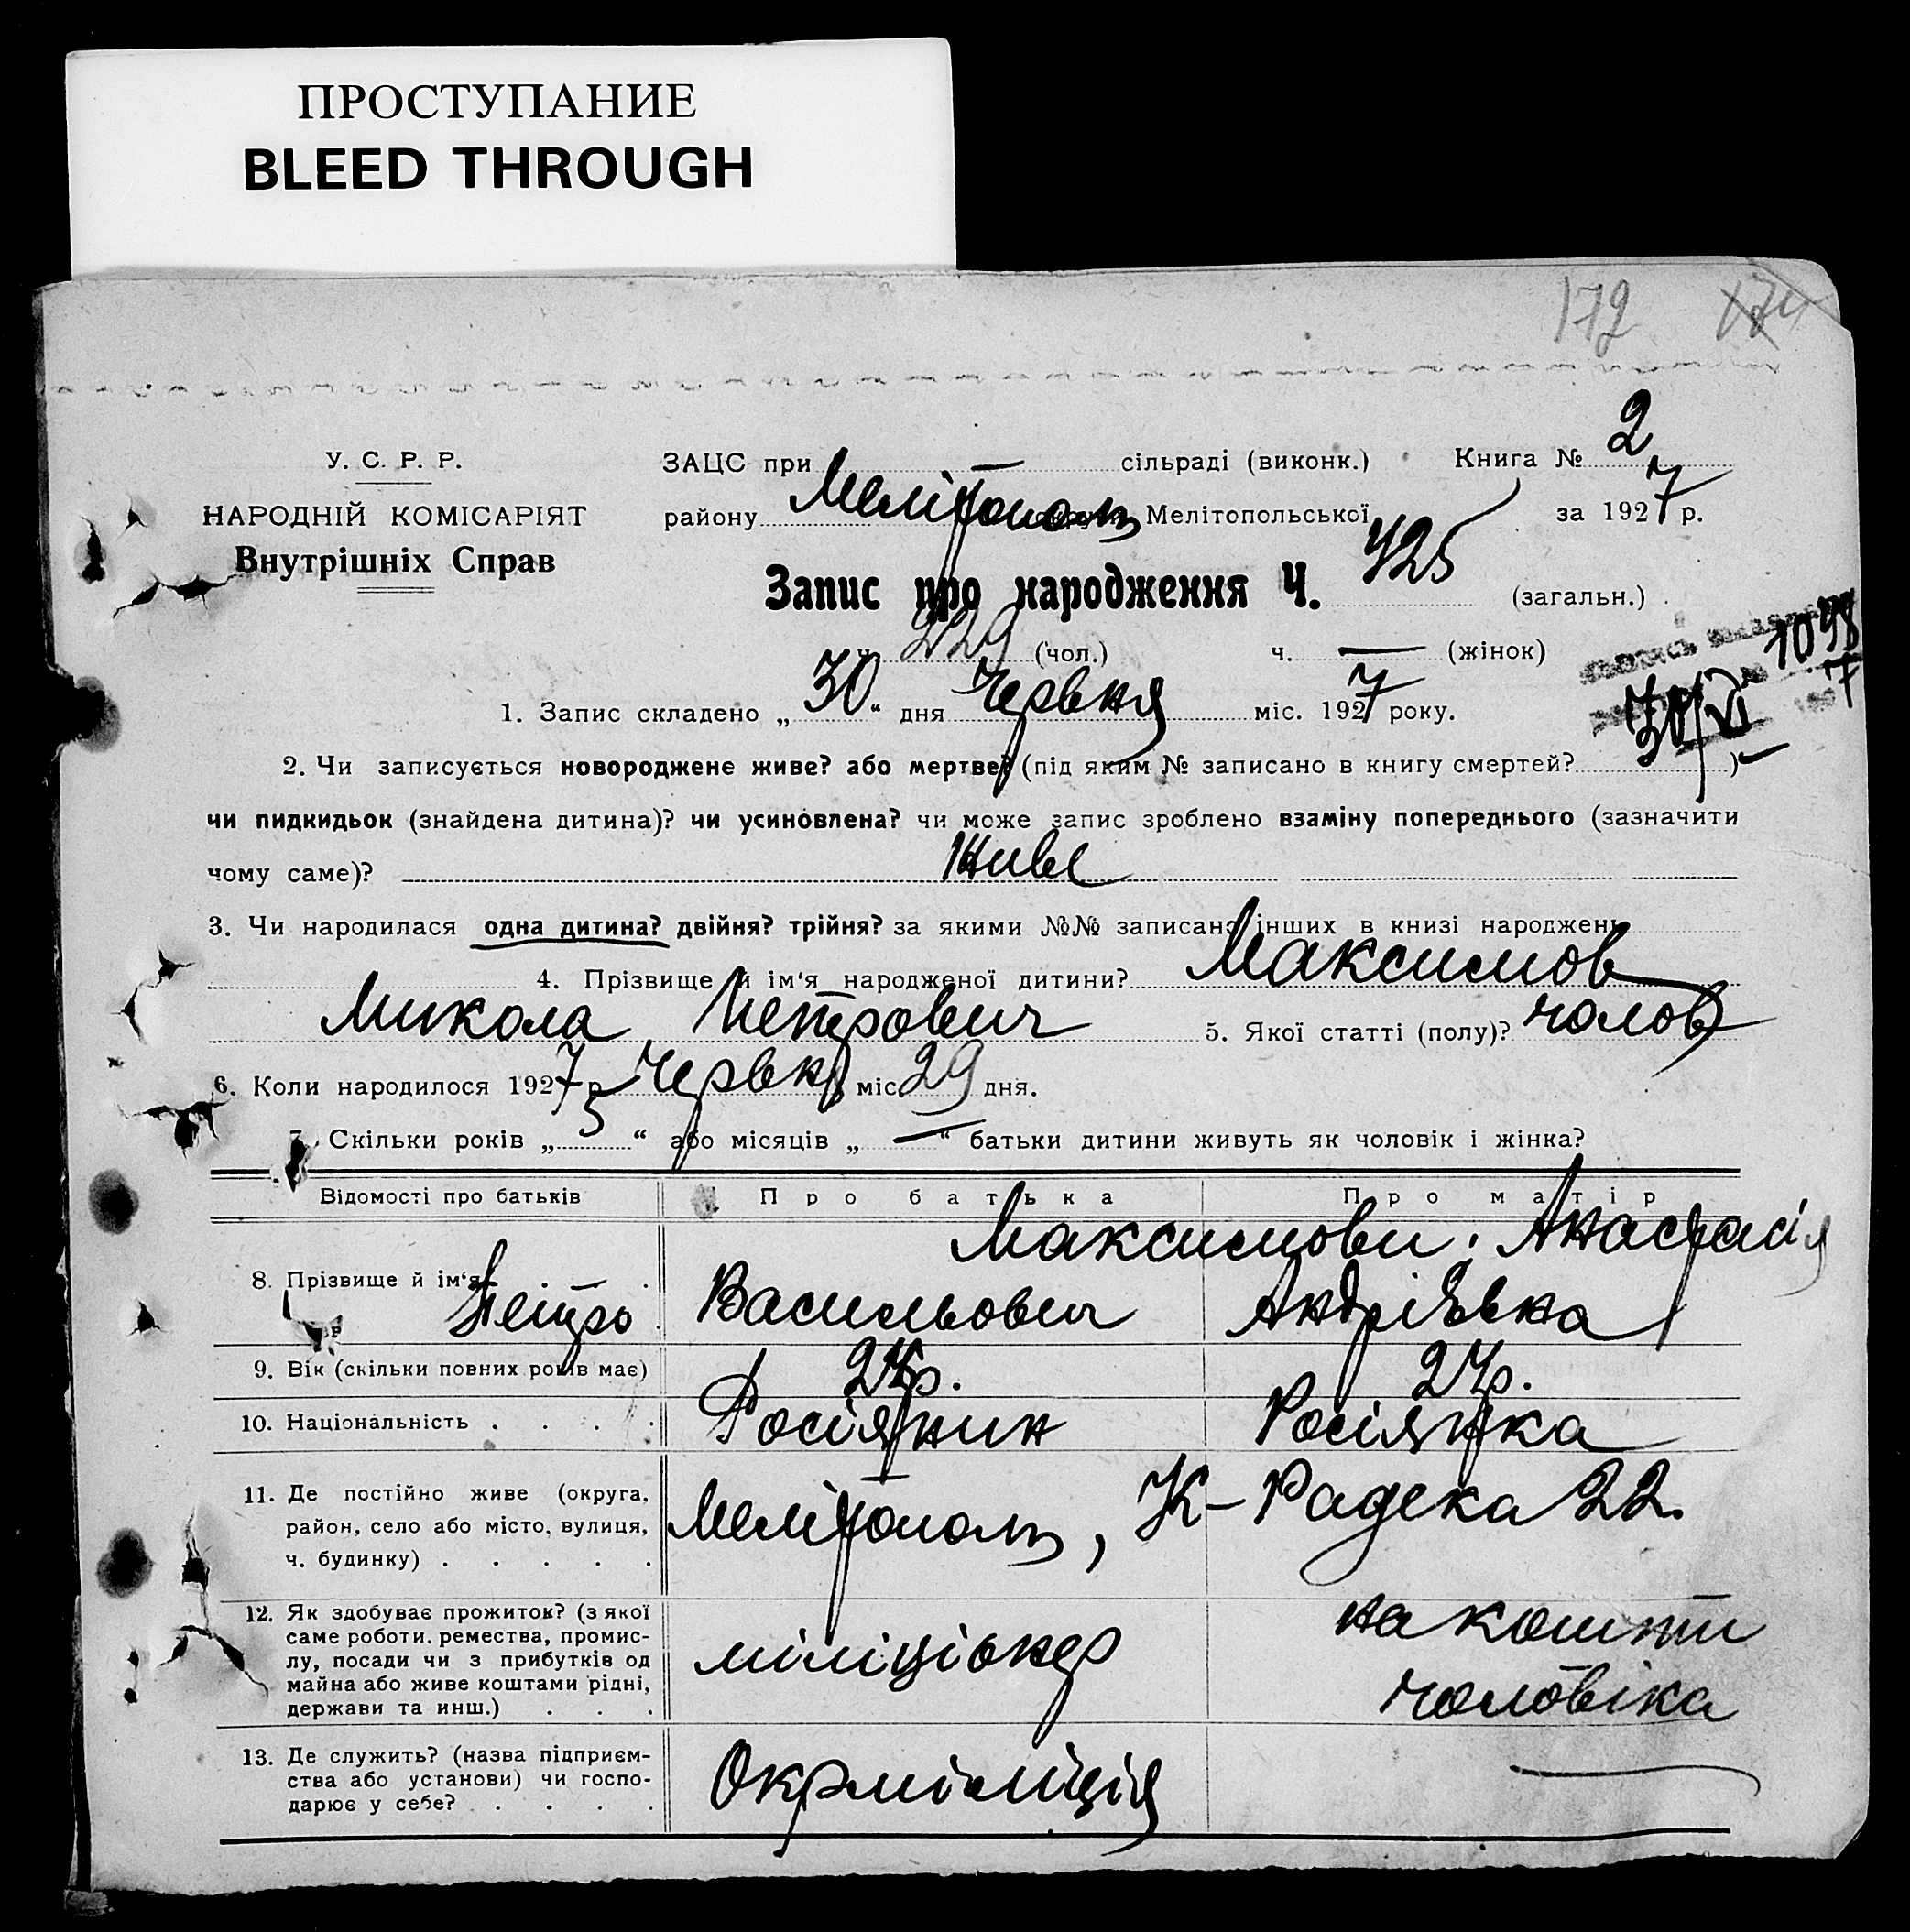 ПРОСТУПАНИЕ
BLEED THROUGH
172 174
У. С. Р. Р.
НАРОДНІЙ КОМІСАРІЯТ
Внутрішніх Справ
ЗАЦС при — сільраді (виконк.) Книга № 2
району Мелітополь округи Мелітопольської за 1927 р.
Запис про народження Ч. 425 (загальн.)
ч. 229 (чол.) ч. — (жінок)
1098
30/VI
1. Запис складено „ 30 “ дня Червня міс. 1927 року.
2. Чи записується новороджене живе? або мертве? (під яким № записано в книгу смертей? —)
чи пидкидьок (знайдена дитина)? чи усиновлена? чи може запис зроблено взаміну попереднього (зазначити
чому саме)? Живе
3. Чи народилася одна дитина? двійня? трійня? за якими №№ записано інших в книзі народжень
4. Прізвище й ім‘я народженої дитини? Максимов
Микола Петрович 5. Якої статті (полу)? чолов
6. Коли народилося 1927 р. Червня міс. 29 дня.
7. Скільки років „ 5 “ або місяців „ — “ батьки дитини живуть як чоловік і жінка?
Відомості про батьків Про батька Про матір
8. Прізвище й ім‘я Максимови: Анастасія
Петро Васильович Андріївна
9. Вік (скільки повних років має) 24р. 24р.
10. Національність . . . . Росіянин Росіянка
11. Де постійно живе (округа,
район, село або місто, вулиця,
ч. будинку) . . . . .
Мелітополь, К-Радека 22.
12. Як здобуває прожиток? (з якої
саме роботи, ремества, промис-
лу, посади чи з прибутків од
майна або живе коштами рідні,
держави та инш.) . . .
міліціонер
на кошти
чоловіка
13. Де служить? (назва підприєм-
ства або установи) чи госпо-
дарює у себе? . . . .
Окрміліція —